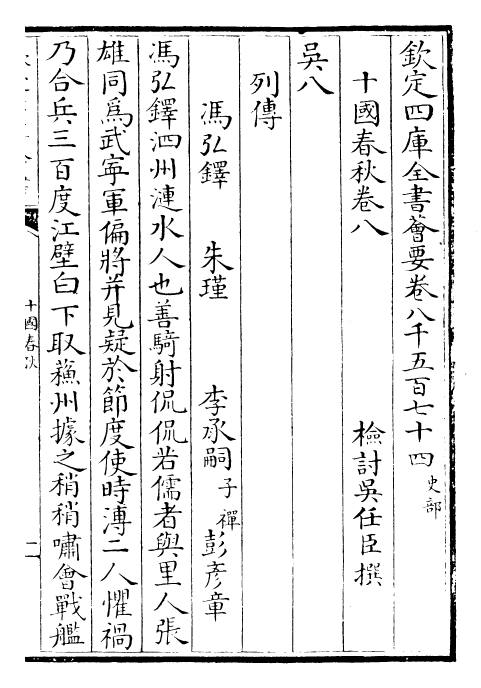 欽定四庫全書薈要卷八千五百七十四 史部
十國春秋卷八 檢討吳任臣撰
吳八
列傳
馮弘鐸 朱瑾 李承嗣 子禪 彭彥章
馮弘鐸泗州漣水人也善騎射侃侃若儒者與里人張
雄同爲武寜軍偏將并見疑於節度使時溥二人懼禍
乃合兵三百度江壁白下取蘓州據之稍稍嘯會戰艦
十國春秋
一